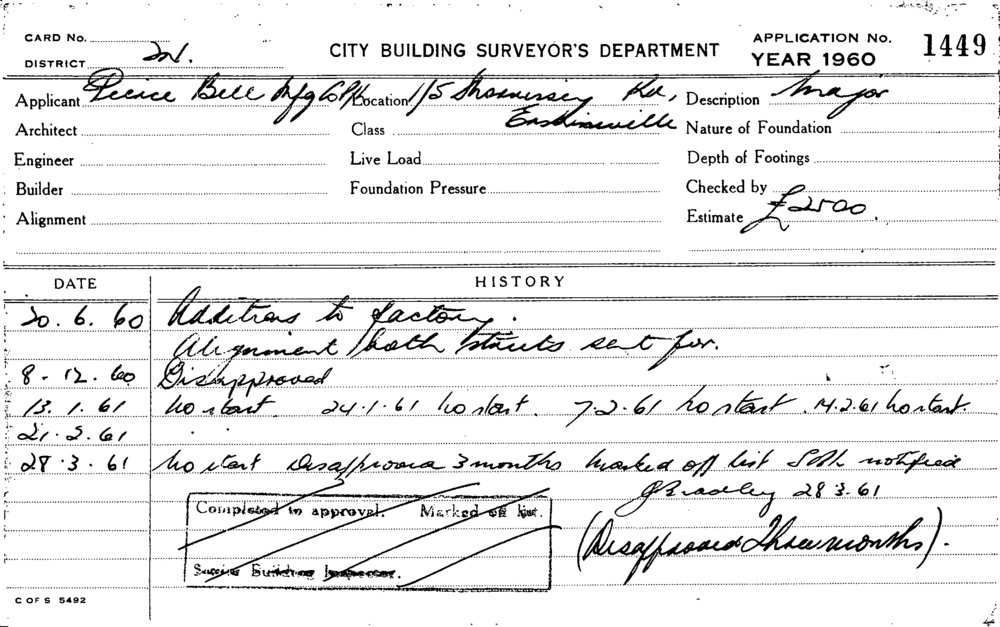 CARD No.
DISTRICT
CITY BUILDING SURVEYOR'S DEPARTMENT
APPLICATION No. 1449
YEAR 1960
Applicant Peirce Bell Mfg Co P/L Location 1/5 Rd, Description Major
Erskineville
Architect Class Nature of Foundation
Engineer Live Load Depth of Footings
Builder Foundation Pressure Checked by
Alignment Estimate £2500.
DATE HISTORY
20.6.60 Additions to factory.
Alignment both streets sent for.
8-12.60 Disapproved
13.1.61 No start. 24.1.61 No start. 7.2.61 No start. 14.2.61 No start.
21.2.61 " "
28.3.61 No start Disapproved 3 months Marked off list notified
J Bradley 28.3.61
Completed to approval. Marked off list.
(Disapproved Three months).
Building Inspector.
C OF S 5492